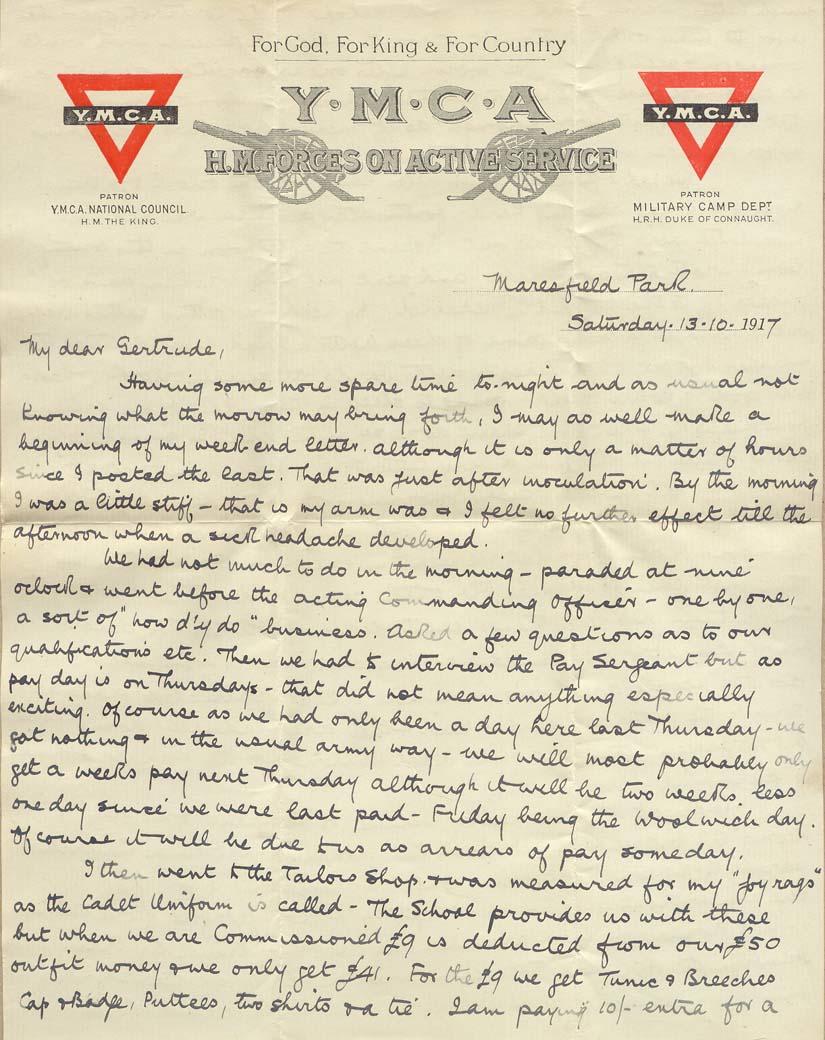 For God, For King & For Country
Y·M·C·A
H.M. FORCES ON ACTIVE SERVICE
Y.M.C.A.
PATRON
Y.M.C.A. NATIONAL COUNCIL
H.M. THE KING.
Y.M.C.A.
PATRON
MILITARY CAMP DEPT
H.R.H. DUKE OF CONNAUGHT.
Maresfield Park.
Saturday. 13-10-1917
My dear Gertrude,
Having some more spare time to-night and as usual not
knowing what the morrow may bring forth, I may as well make a
beginning of my week-end letter. although it is only a matter of hours
since I posted the last. That was just after inoculation. By the morning
I was a little stiff - that is my arm was & I felt no further effect till the
afternoon when a sick headache developed.
We had not much to do in the morning - paraded at nine
oclock & went before the acting Commanding Officer - one by one,
a sort of "how d'y do" business. Asked a few questions as to our
qualifications etc. Then we had to interview the Pay Sergeant but as
pay day is on Thursdays - that did not mean anything especially
exciting. Of course as we had only been a day here last Thursday - we
got nothing & in the usual army way - we will most probably only
get a weeks pay next Thursday although it will be two weeks less
one day since we were last paid - Friday being the Woolwich day.
Of course it will be due to us as arrears of pay someday.
I then went to the Tailors Shop & was measured for my "Joy rags"
as the Cadet Uniform is called - The School provides us with these
but when we are Commissioned £9 is deducted from our £50
outfit money & we only get £41. For the £9 we get Tunic & Breeches
Cap & Badge, Puttees, two shirts & a tie. I am paying 10/- extra for a